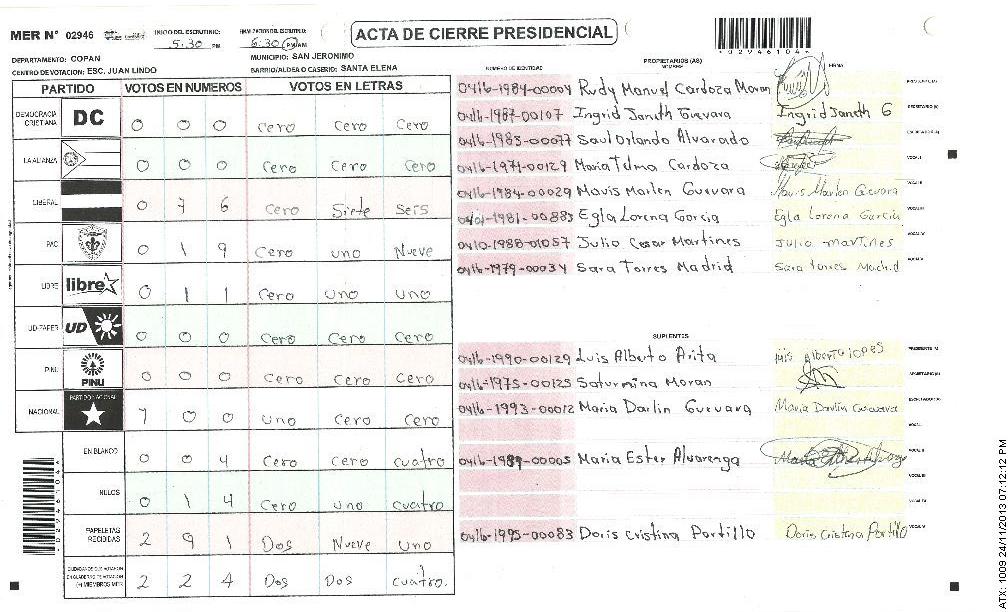 MER N° 02946 INICIO DEL ESCRUTINIO: 5:30 PM FINALIZACION DEL ESCRUTINIO: 6:30 PM/AM ACTA DE CIERRE PRESIDENCIAL
02946104
DEPARTAMENTO: COPAN MUNICIPIO: SAN JERONIMO
CENTRO DE VOTACION: ESC. JUAN LINDO BARRIO/ALDEA O CASERIO: SANTA ELENA
PARTIDO VOTOS EN NUMEROS VOTOS EN LETRAS
DEMOCRACIA CRISTIANA DC 0 0 0 Cero Cero Cero
LA ALIANZA 0 0 0 Cero Cero Cero
LIBERAL 0 7 6 Cero Siete Seis
PAC 0 1 9 Cero uno Nueve
LIBRE libre 0 1 1 Cero uno uno
UD-FAPER UD 0 0 0 Cero Cero Cero
PINU PINU 0 0 0 Cero Cero Cero
NACIONAL PARTIDO NACIONAL 1 0 0 Uno Cero Cero
EN BLANCO 0 0 4 Cero Cero cuatro
NULOS 0 1 4 Cero uno cuatro
PAPELETAS RECIBIDAS 2 9 1 Dos Nueve uno
CIUDADANOS QUE VOTARON EN CUADERNO DE VOTACION (+) MIEMBROS MER 2 2 4 Dos Dos cuatro.
NUMERO DE IDENTIDAD PROPIETARIOS (AS) NOMBRE FIRMA
0416-1984-00004 Rudy Manuel Cardoza Moran PRESIDENTE (A)
0416-1987-00107 Ingrid Janeth Guevara Ingrid Janeth G SECRETARIO (A)
0416-1985-00077 Saul Orlando Alvarado ESCRUTADOR (A)
0416-1971-00129 Maria Telma Cardoza VOCAL I
0416-1984-00029 Mavis Marlen Guevara Mavis Marlen Guevara VOCAL II
0401-1981-00883 Egla Lorena Garcia Egla Lorena Garcia VOCAL III
0410-1988-01057 Julio Cesar Martines Julio martines VOCAL IV
0416-1979-00034 Sara Torres Madrid Sara torres Madrid VOCAL V
SUPLENTES
0416-1990-00129 Luis Alberto Arita PRESIDENTE (A)
0416-1975-00125 Saturmina Moran SECRETARIO (A)
0416-1993-00012 Maria Darlin Guevara Maria Darlin Guevara ESCRUTADOR (A)
VOCAL I
0416-1989-00005 Maria Ester Alvarenga VOCAL II
VOCAL III
VOCAL IV
0416-1995-00083 Doris Cristina Portillo Doris Cristina Portillo VOCAL V
02946104
ATX: 1009 24/11/2013 07:12:12 PM